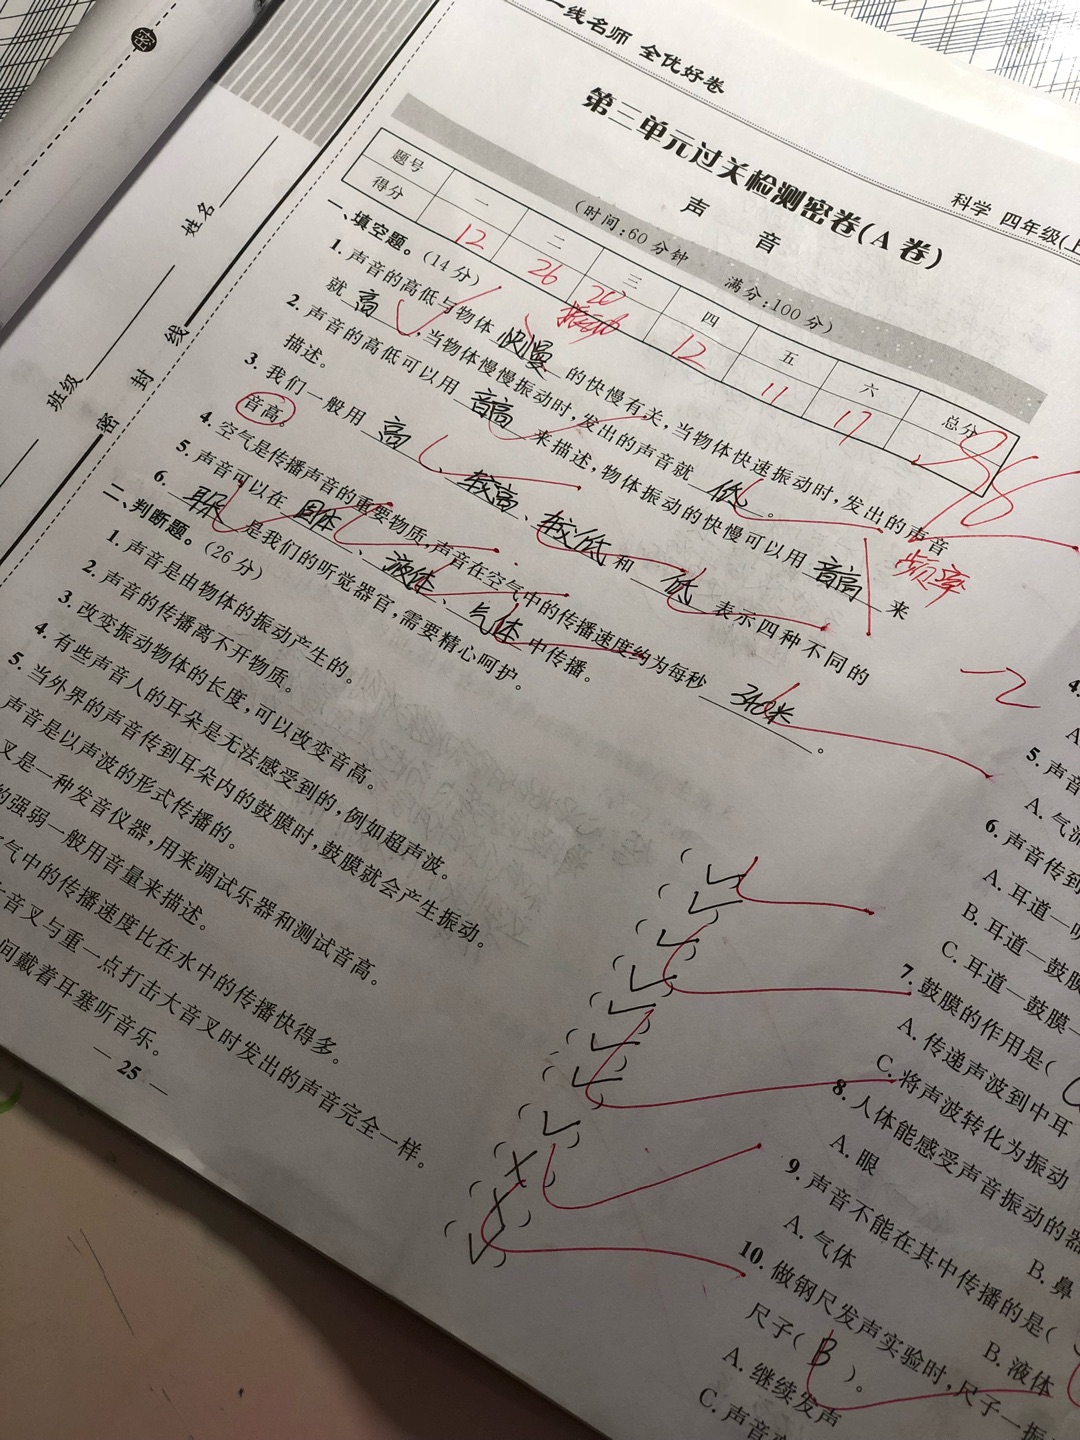 密
一线名师 全优好卷
科学 四年级(上
第三单元过关检测密卷(A卷)
声 音
(时间:60分钟 满分:100分)
题号 一 二 三 四 五 六 总分
得分 12 26 20 12 11 17 96
姓名
班级
密 封 线
一、填空题。(14分)
1. 声音的高低与物体 快慢 振动 的快慢有关,当物体快速振动时,发出的声音
就 高 ,当物体慢慢振动时,发出的声音就 低 。
2. 声音的高低可以用 音高 来描述,物体振动的快慢可以用 音高 来 频率
描述。
3. 我们一般用 高 、 较高 、 较低 和 低 表示四种不同的
音高。
-2
4. 空气是传播声音的重要物质,声音在空气中的传播速度约为每秒 340米 。
5. 声音可以在 固体 、 液体 、 气体 中传播。
6. 耳朵 是我们的听觉器官,需要精心呵护。
二、判断题。(26分)
1. 声音是由物体的振动产生的。 (✓)
2. 声音的传播离不开物质。 (✓)
3. 改变振动物体的长度,可以改变音高。 (✓)
4. 有些声音人的耳朵是无法感受到的,例如超声波。 (✓)
5. 当外界的声音传到耳朵内的鼓膜时,鼓膜就会产生振动。 (✓)
声音是以声波的形式传播的。 (✓)
叉是一种发音仪器,用来调试乐器和测试音高。 (✓)
的强弱一般用音量来描述。 (✓)
气中的传播速度比在水中的传播快得多。 (×)
音叉与重一点打击大音叉时发出的声音完全一样。 (×)
间戴着耳塞听音乐。 (✓)
— 25 —
4.
A.
5. 声音
A. 气流
6. 声音传到
A. 耳道—
B. 耳道—鼓膜
C. 耳道—鼓膜—
7. 鼓膜的作用是(
A. 传递声波到中耳
C. 将声波转化为振动
8. 人体能感受声音振动的器
A. 眼 B. 鼻
9. 声音不能在其中传播的是(
A. 气体 B. 液体
10. 做钢尺发声实验时,尺子一振
尺子( B )。
A. 继续发声
C. 声音